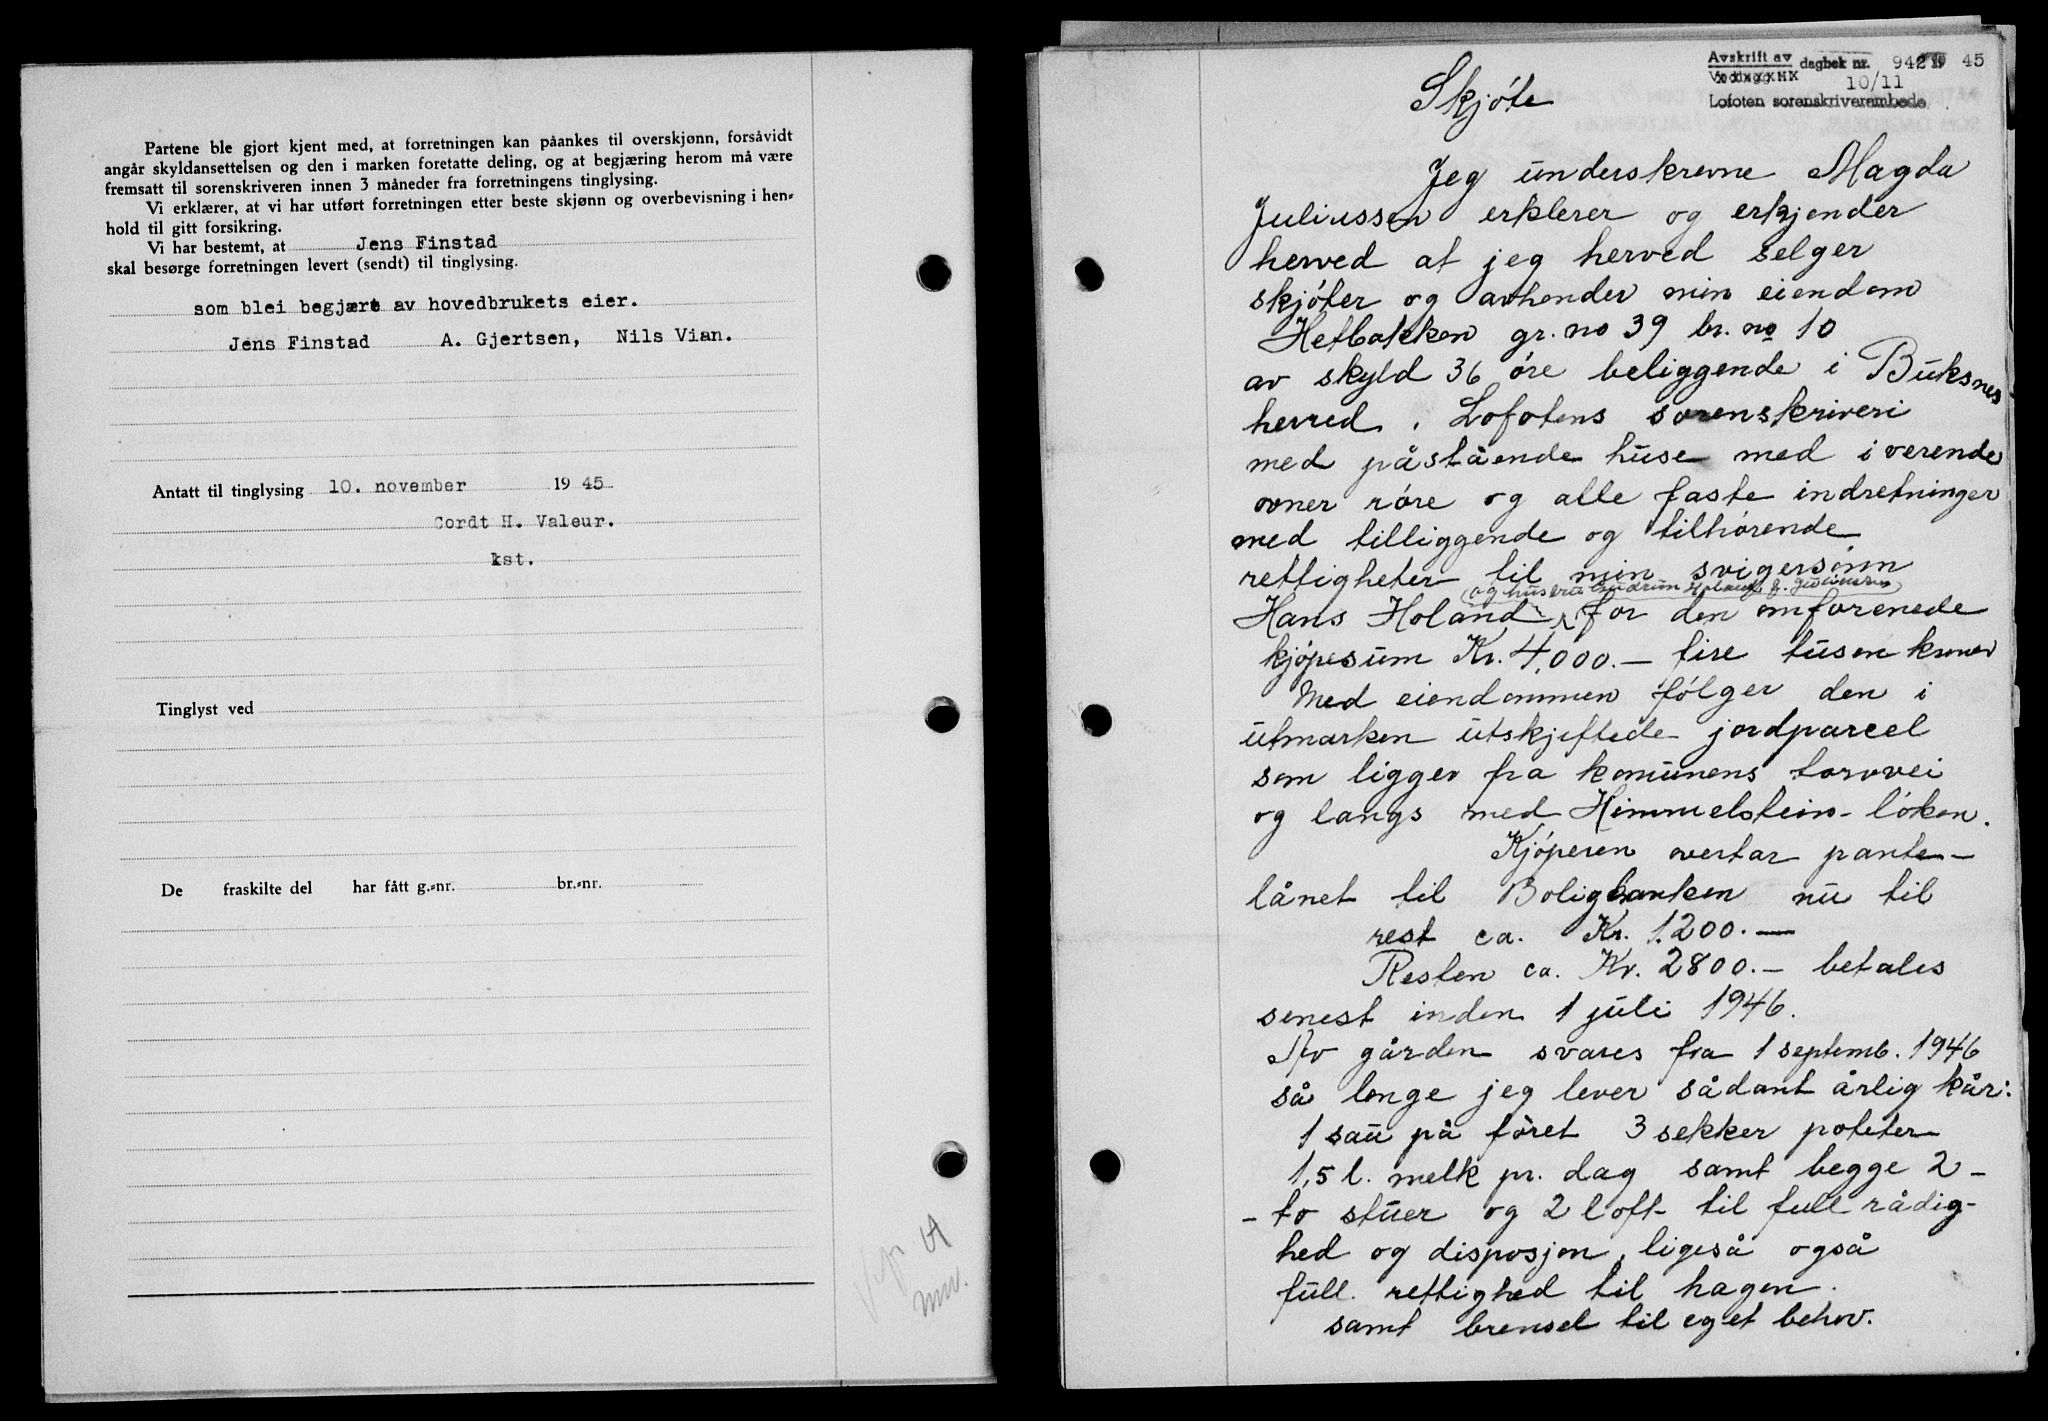 Partene ble gjort kjent med, at forretningen kan påankes til overskjønn, forsåvidt
angår skyldansettelsen og den i marken foretatte deling, og at begjæring herom må være
fremsatt til sorenskriveren innen 3 måneder fra forretningens tinglysing.
Vi erklærer, at vi har utført forretningen etter beste skjønn og overbevisning i hen-
hold til gitt forsikring.
Vi har bestemt, at Jens Finstad
skal besørge forretningen levert (sendt) til tinglysing.
som blei begjært av hovedbrukets eier.
Jens Finstad A. Gjertsen, Nils Vian.
Antatt til tinglysing 10. november 19 45
Cordt H. Valeur.
kst.
Tinglyst ved
De fraskilte del har fått g.-nr. br.-nr.
Avskrift av dagbok nr. 942 19 45
10/11
Lofoten sorenskriverembede
Skjöte
Jeg underskrevne Magda
Juliussen erklerer og erkjender
herved at jeg herved selger
skjöter og avhender min eiendom
Hetbakken gr. no 39 br. no 10
av skyld 36 öre beliggende i Buksnes
herred, Lofotens sorenskriveri
med påstående huse med iverende
ovner röre og alle faste indretninger
med tilliggende og tilhörende
rettigheter til min svigersönn
og hustru Gudrun Holand f. Juliussen
Hans Holand for den omforenede
kjöpesum Kr. 4,000.- fire tusen kroner
Med eiendommen fölger den i
utmarken utskjeftede jordparcel
som ligger fra komunens torvvei
og langs med Himmelstein-löken.
Kjöperen overtar pante-
lånet til Boligbanken nu til
rest ca. Kr. 1.200.-
Resten ca. Kr. 2800.- betales
senest inden 1 juli 1946.
Av gården svares fra 1 septemb. 1946
så lenge jeg lever sådant årlig kår:
1 sau på fôret 3 sekker poteter
1,5 l. melk pr. dag samt begge 2-
- to stuer og 2 loft til full rådig-
hed og disposjon, ligeså også
full rettighed til hagen.
samt brensel til eget behov.